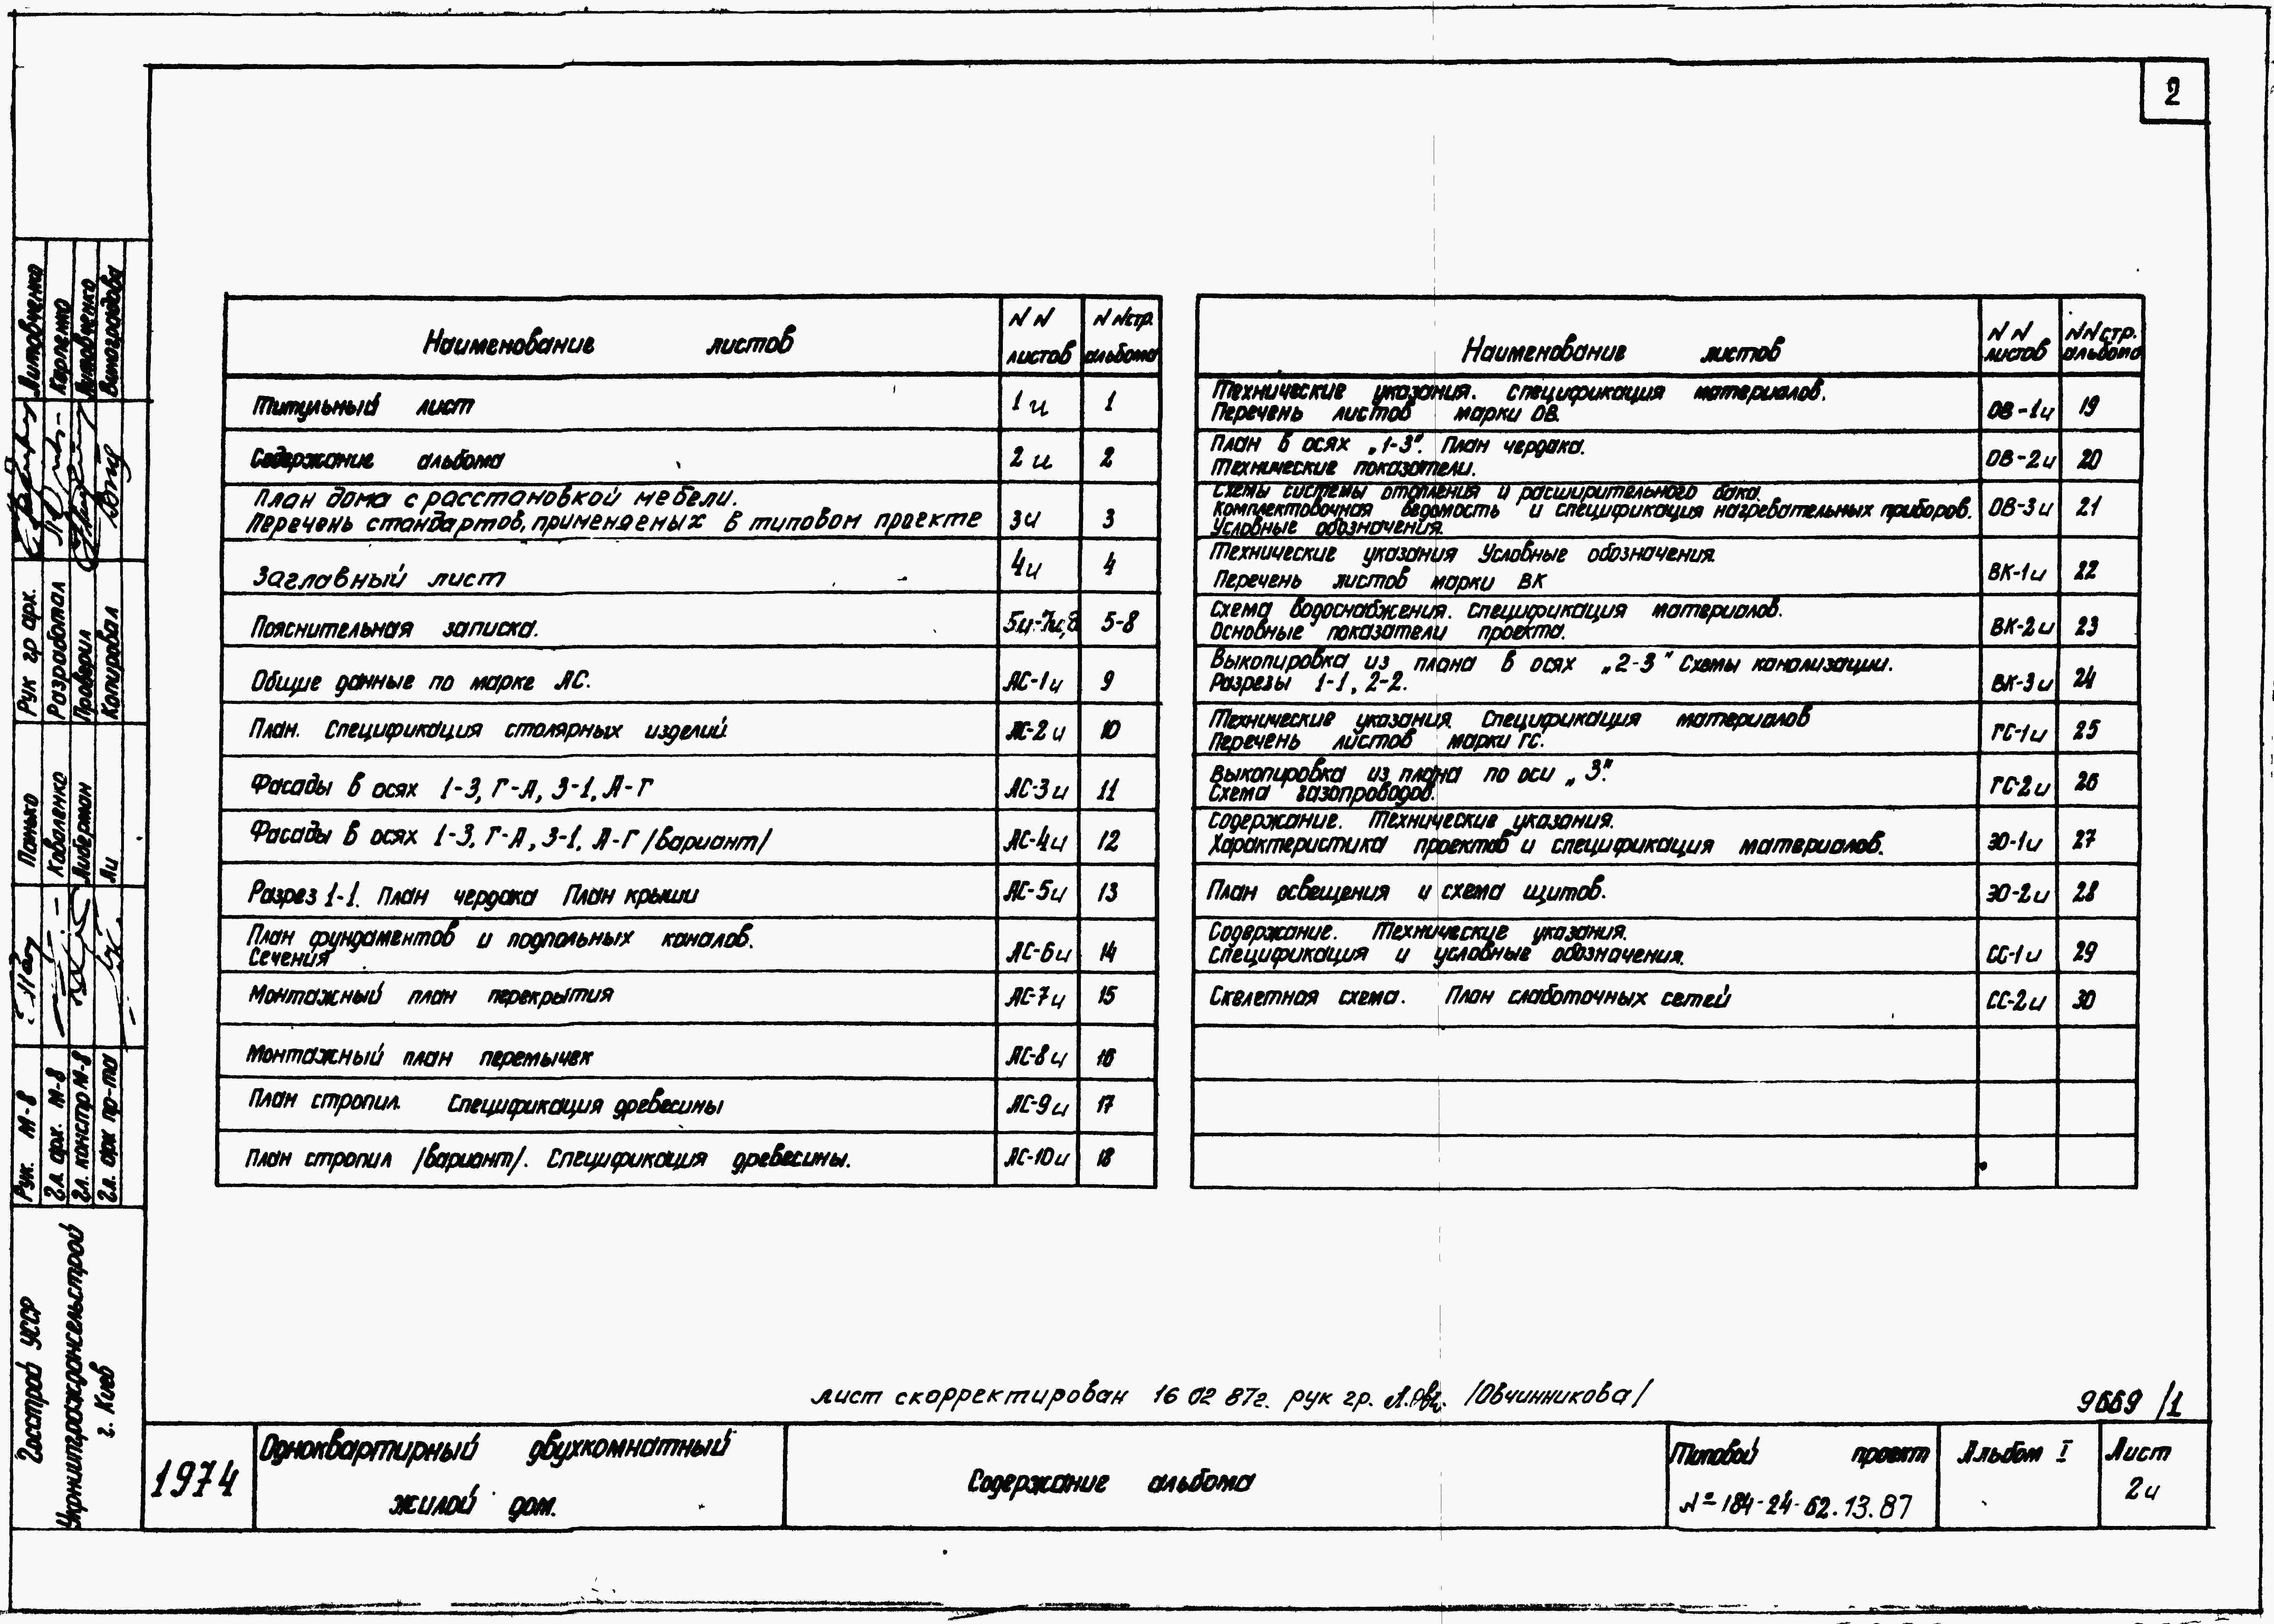 2
Наименование листов
N N листов
N Nстр. альбома
Титульный лист 1и 1
Содержание альбома 2и 2
План дома с расстановкой мебели.
Перечень стандартов, применяемых в типовом проекте 3и 3
Заглавный лист 4и 4
Пояснительная записка. 5и-7и,8 5-8
Общие данные по марке АС. АС-1и 9
План. Спецификация столярных изделий АС-2и 10
Фасады в осях 1-3, Г-А, 3-1, А-Г АС-3и 11
Фасады в осях 1-3, Г-А, 3-1, А-Г /вариант/ АС-4и 12
Разрез 1-1. План чердака План крыши АС-5и 13
План фундаментов и подпольных каналов.
Сечения АС-6и 14
Монтажный план перекрытия АС-7и 15
Монтажный план перемычек АС-8и 16
План стропил. Спецификация древесины АС-9и 17
План стропил /вариант/. Спецификация древесины. АС-10и 18
Наименование листов
N N листов
NN стр. альбома
Технические указания. Спецификация материалов.
Перечень листов марки ОВ. ОВ-1и 19
План в осях „1-3". План чердака.
Технические показатели. ОВ-2и 20
Схемы системы отопления и расширительного бака.
Комплектовочная ведомость и спецификация нагревательных приборов. ОВ-3и 21
Условные обозначения.
Технические указания Условные обозначения.
Перечень листов марки ВК ВК-1и 22
Схема водоснабжения. Спецификация материалов.
Основные показатели проекта. ВК-2и 23
Выкопировка из плана в осях „2-3" Схемы канализации.
Разрезы 1-1, 2-2. ВК-3и 24
Технические указания. Спецификация материалов
Перечень листов марки ГС. ГС-1и 25
Выкопировка из плана по оси „3".
Схема газопроводов. ГС-2и 26
Содержание. Технические указания.
Характеристика проектов и спецификация материалов. ЭО-1и 27
План освещения и схема щитов. ЭО-2и 28
Содержание. Технические указания.
Спецификация и условные обозначения. СС-1и 29
Скелетная схема. План слаботочных сетей СС-2и 30
лист скорректирован 16 02 87г. рук гр. /Овчинникова/
9669/1
1974
Одноквартирный двухкомнатный
жилой дом.
Содержание альбома
Типовой проект
№ 184-24-62.13.87
Альбом I
Лист
2и
Госстрой УССР
Укрниипграждансельстрой
г. Киев
Рук. М-8 Панько
Гл. арх. М-8 Коваленко
Гл. констр М-8 Либерман
Гл. арх пр-та Ли
Рук гр арх. Литовченко
Разработал Карпенко
Проверил Литовченко
Копировал Виноградова